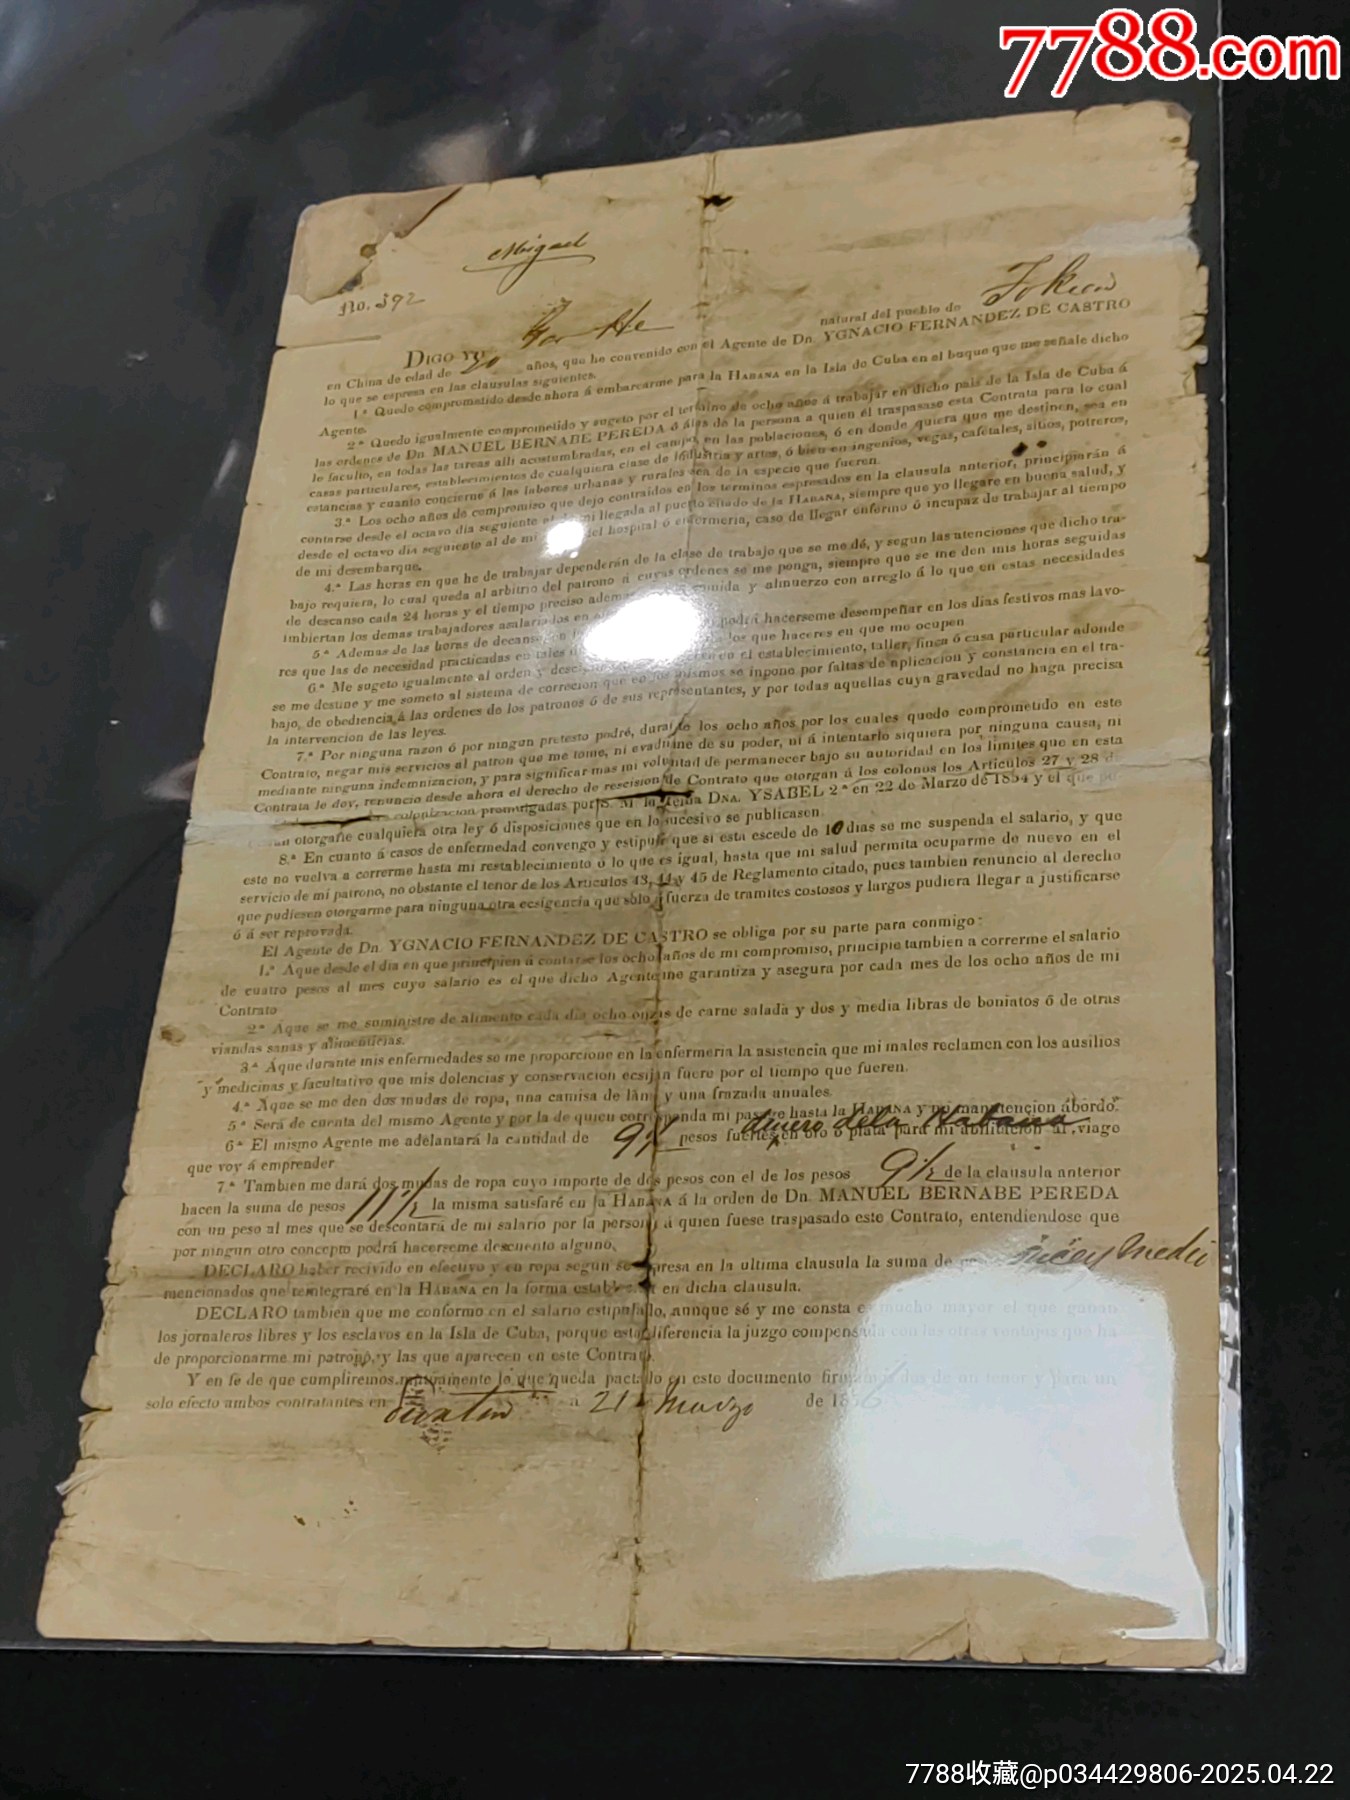 7788.com
Miguel
No. 392
DIGO YO natural del pueblo de Fokien
en China de edad de 20 años, que he convenido con el Agente de Dn. YGNACIO FERNANDEZ DE CASTRO
lo que se espresa en las clausulas siguientes.
1.ª Quedo comprometido desde ahora á embarcarme para la HABANA en la Isla de Cuba en el buque que me señale dicho
Agente.
2.ª Quedo igualmente comprometido y sugeto por el termino de ocho años á trabajar en dicho pais de la Isla de Cuba á
las ordenes de Dn. MANUEL BERNABE PEREDA ó á las de la persona a quien él traspasase esta Contrata para lo cual
le faculto, en todas las tareas alli acostumbradas, en el campo, en las poblaciones, ó en donde quiera que me destinen, sea en
casas particulares, establecimientos de cualquiera clase de industria y artes, ó bien en ingenios, vegas, cafetales, sitios, potreros,
estancias y cuanto concierne á las labores urbanas y rurales sea de la especie que fueren.
3.ª Los ocho años de compromiso que dejo contraidos en los terminos espresados en la clausula anterior, principiarán á
contarse desde el octavo dia seguiente al de mi llegada al puerto citado de la HABANA, siempre que yo llegare en buena salud, y
desde el octavo dia seguiente al de mi del hospital ó enfermeria, caso de llegar enfermo ó incapaz de trabajar al tiempo
de mi desembarque.
4.ª Las horas en que he de trabajar dependerán de la clase de trabajo que se me dé, y segun las atenciones que dicho tra-
bajo requiera, lo cual queda al arbitrio del patrono á cuyas ordenes se me ponga, siempre que se me den mis horas seguidas
de descanso cada 24 horas y el tiempo preciso ademas comida y almuerzo con arreglo á lo que en estas necesidades
imbiertan los demas trabajadores asalariados en
5.ª Ademas de las horas de decanso podrá hacerseme desempeñar en los dias festivos mas lavo-
res que las de necesidad practicadas en tales los que haceres en que me ocupen.
6.ª Me sugeto igualmente al orden y en el establecimiento, taller, finca ó casa particular adonde
se me destine y me someto al sistema de correcion que en los mismos se inpone por faltas de aplicacion y constancia en el tra-
bajo, de obediencia á las ordenes de los patronos ó de sus representantes, y por todas aquellas cuya gravedad no haga precisa
la intervencion de las leyes.
7.ª Por ninguna razon ó por ningun pretesto podré, durante los ocho años por los cuales quedo comprometido en este
Contrato, negar mis servicios al patron que me tome, ni evadirme de su poder, ni á intentarlo siquiera por ninguna causa, ni
mediante ninguna indemnizacion, y para significar mas mi voluntad de permanecer bajo su autoridad en los limites que en esta
Contrata le doy, renuncio desde ahora el derecho de rescision de Contrato que otorgan á los colonos los Articulos 27 y 28
colonizacion promulgadas por S. M. la Reina DNA. YSABEL 2.ª en 22 de Marzo de 1854 y el que
otorgarme cualquiera otra ley ó disposiciones que en lo sucesivo se publicasen.
8.ª En cuanto á casos de enfermedad convengo y estipulo que si esta escede de 10 dias se me suspenda el salario, y que
este no vuelva a correrme hasta mi restablecimiento ó lo que es igual, hasta que mi salud permita ocuparme de nuevo en el
servicio de mi patrono, no obstante el tenor de los Articulos 43, 44 y 45 de Reglamento citado, pues tambien renuncio al derecho
que pudiesen otorgarme para ninguna otra ecsigencia que solo á fuerza de tramites costosos y largos pudiera llegar a justificarse
ó á ser reprovada.
El Agente de Dn. YGNACIO FERNANDEZ DE CASTRO se obliga por su parte para conmigo:
1.ª Aque desde el dia en que principien á contarse los ocho años de mi compromiso, principie tambien a correrme el salario
de cuatro pesos al mes cuyo salario es el que dicho Agente me garantiza y asegura por cada mes de los ocho años de mi
Contrato
2.ª Aque se me suministre de alimento cada dia ocho onzas de carne salada y dos y media libras de boniatos ó de otras
viandas sanas y alimenticias.
3.ª Aque durante mis enfermedades se me proporcione en la enfermeria la asistencia que mi males reclamen con los ausilios
y medicinas y facultativo que mis dolencias y conservacion ecsijan fuere por el tiempo que fueren.
4.ª Aque se me den dos mudas de ropa, una camisa de lana y una frazada anuales.
5.ª Será de cuenta del mismo Agente y por la de quien corresponda mi pasaje hasta la HABANA y mi manutencion ábordo.
6.ª El mismo Agente me adelantará la cantidad de 9½ pesos fuertes en oro ó plata para mi abilitacion al viage
dinero dela Habana
que voy á emprender
7.ª Tambien me dará dos mudas de ropa cuyo importe de dos pesos con el de los pesos 9½ de la clausula anterior
hacen la suma de pesos 11½ la misma satisfaré en la HABANA á la orden de Dn. MANUEL BERNABE PEREDA
con un peso al mes que se descontará de mi salario por la persona á quien fuese traspasado este Contrato, entendiendose que
por ningun otro concepto podrá hacerseme descuento alguno.
DECLARO haber recivido en efectivo y en ropa segun se espresa en la ultima clausula la suma de y medio
mencionados que reintegraré en la HABANA en la forma establecida en dicha clausula.
DECLARO tambien que me conformo en el salario estipulado, aunque sé y me consta es mucho mayor el que ganan
los jornaleros libres y los esclavos en la Isla de Cuba, porque esta diferencia la juzgo compensada con las otras ventajas que ha
de proporcionarme mi patrono, y las que aparecen en este Contrato.
Y en fe de que cumpliremos mutuamente lo que queda pactado en este documento firmamos dos de un tenor y para un
solo efecto ambos contratantes en a 21 Marzo de 18
7788收藏@p034429806-2025.04.22